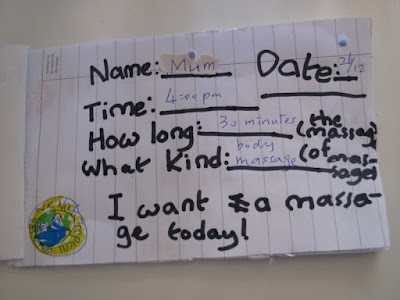 Name: Mum Date: 26/12
Time: 4:00 pm
How long: 30 minutes (the massage)
What Kind: body massage (of massage)
I want a massa-
ge today!